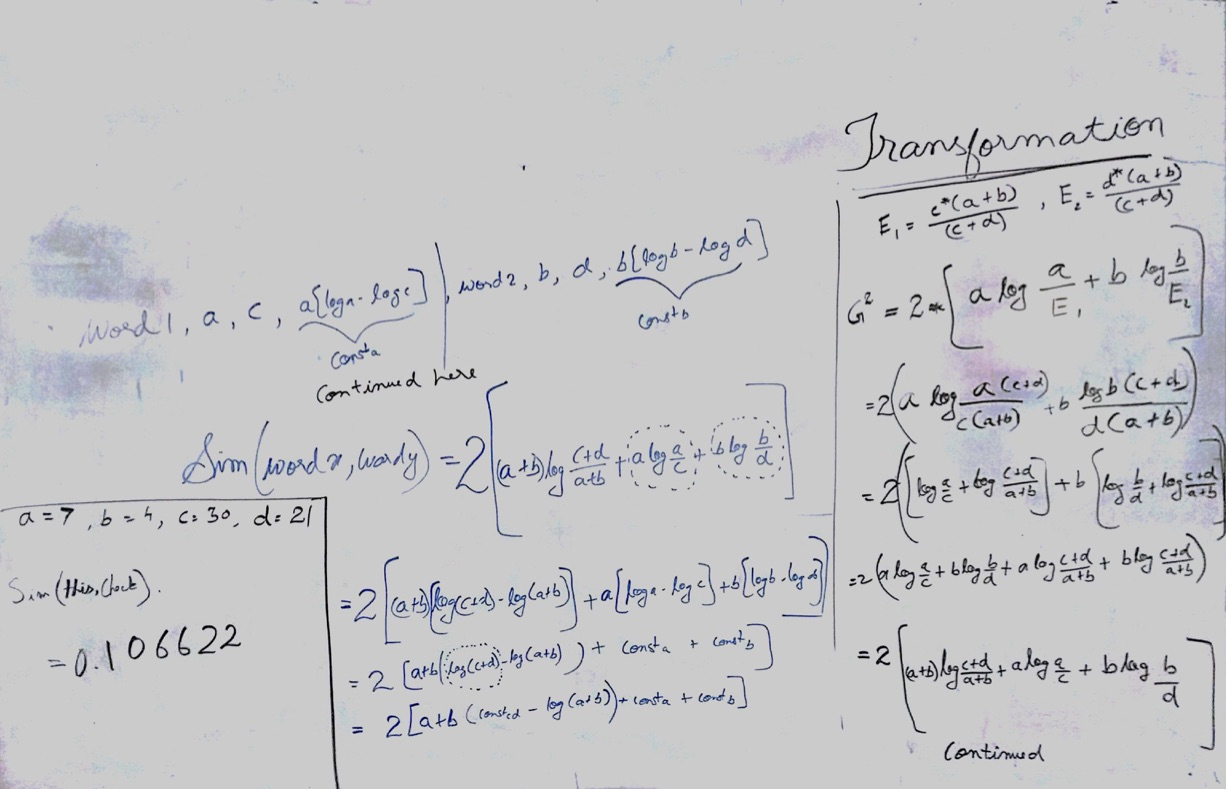 Transformation
E₁ = c*(a+b)/(c+d) , E₂ = d*(a+b)/(c+d)
G² = 2 * [a log a/E₁ + b log b/E₂]
= 2(a log a(c+d)/c(a+b) + b log b(c+d)/d(a+b))
= 2([log a/c + log c+d/a+b] + b [log b/d + log c+d/a+b]
= 2(a log a/c + b log b/d + a log c+d/a+b + b log c+d/a+b)
= 2[(a+b) log c+d/a+b + a log a/c + b log b/d]
Continued
word 1, a, c, a[log a - log c], word 2, b, d, b[log b - log d]
const a
const b
Continued here
Sim(word x, word y) = 2[(a+b) log c+d/a+b + a log a/c + b log b/d]
= 2[(a+b)[log(c+d) - log(a+b)] + a[log a - log c] + b[log b - log d]]
= 2 [a+b(log(c+d) - log(a+b)) + const a + const b]
= 2 [a+b (const cd - log(a+b)) + const a + const b]
a = 7, b = 4, c = 30, d = 21
Sim(this, clock).
= 0.106622